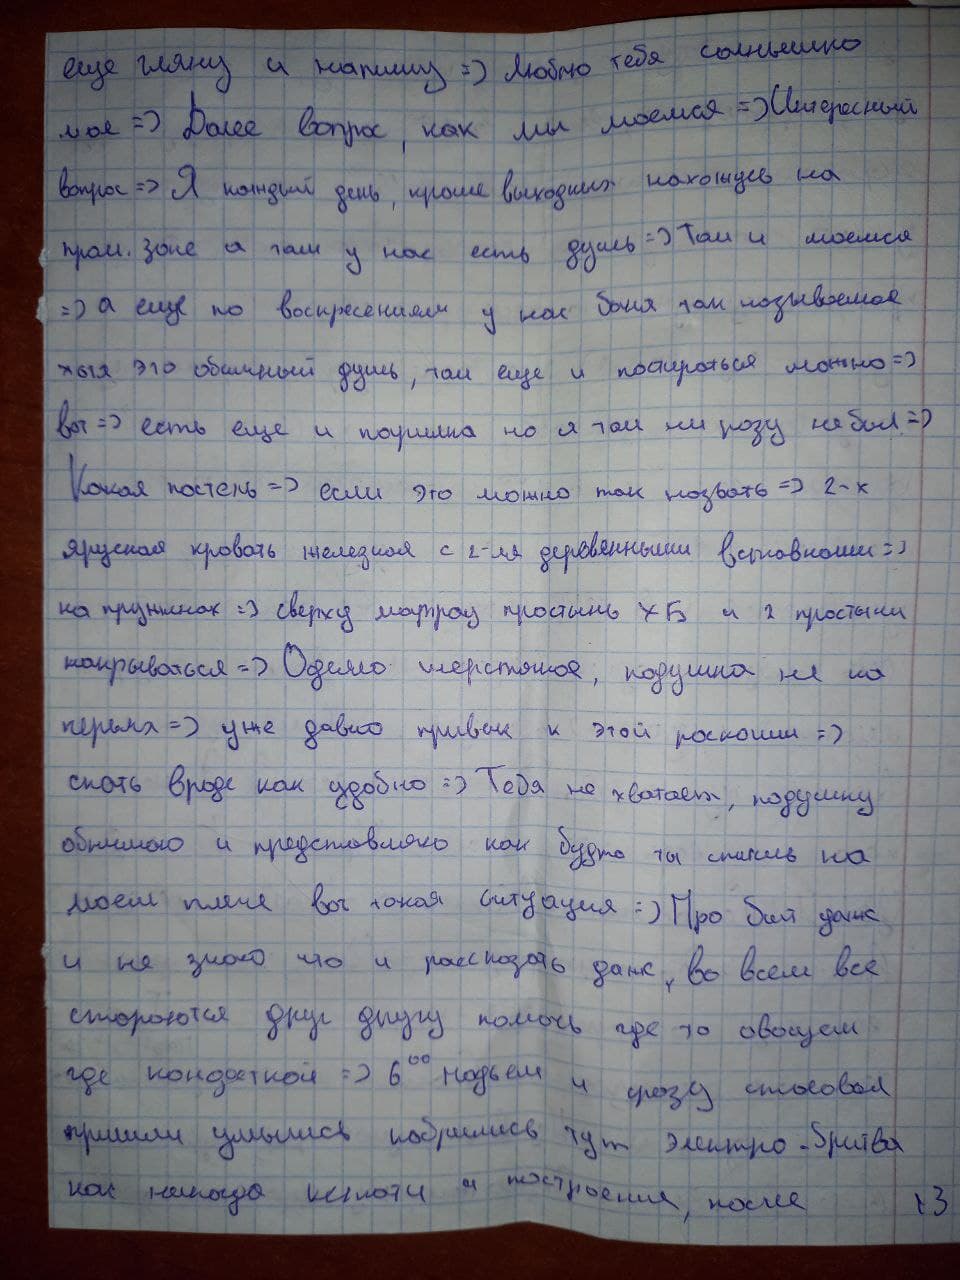 еще гляну и напишу =) Люблю тебя солнышко
мое =) Далее вопрос, как мы моемся =) Интересный
вопрос =) Я каждый день, кроме выходных нахожусь на
пром. зоне а там у нас есть душь =) Там и моемся
=) а еще по воскресениям у нас баня так называемая
хотя это обычный душь, там еще и постираться можно =)
вот =) есть еще и парилка но я там ни разу не был =)
Какая постель =) если это можно так назвать =) 2-х
ярусная кровать железная с 2-мя деревянными вставками =)
на пружинах =) сверху матрац простынь ХБ и 2 простыни
накрываться =) Одеяло шерстяное, подушка не на
перьях =) уже давно привык к этой роскоши =)
спать вроде как удобно =) Тебя не хватает, подушку
обнимаю и представляю как будто ты спишь на
моем плече вот такая ситуация =) Про быт даже
и не знаю что и рассказать даже, во всем все
стараются друг другу помочь где то овощем
где конфеткой =) 6⁰⁰ подъем и сразу столовая
пришли умылись побрились тут электро-бритва
как никогда кстати и построение, после
13